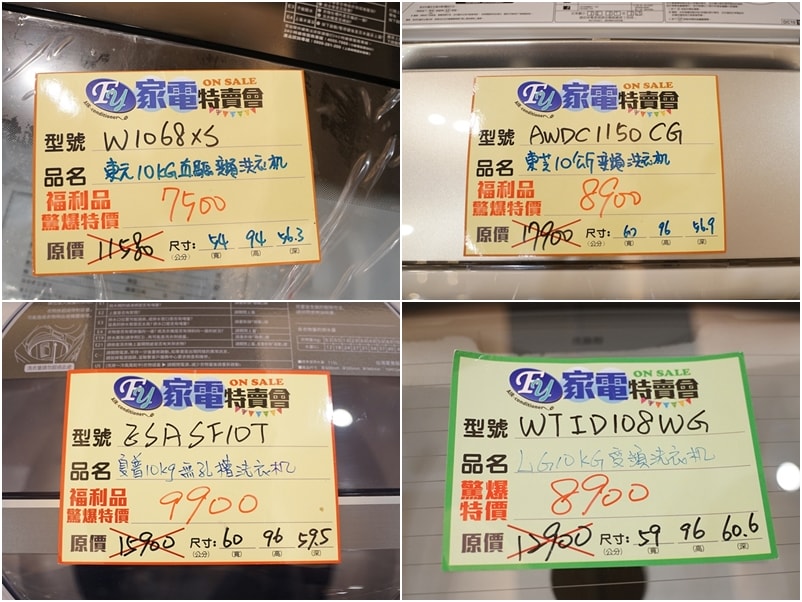 FY 家電特賣會 ON SALE
Air-conditioner
型號 W1068XS
品名 東元10KG直驅變頻洗衣机
福利品
驚爆特價 7500
原價 11580 尺寸: 54 94 56.3
(公分) (寬) (高) (深)
FY 家電特賣會 ON SALE
Air-conditioner
型號 AWDC1150CG
品名 東芝10公斤變頻洗衣机
福利品
驚爆特價 8900
原價 17900 尺寸: 60 96 56.9
(公分) (寬) (高) (深)
FY 家電特賣會 ON SALE
Air-conditioner
型號 ESASF10T
品名 夏普10kg無孔槽洗衣机
福利品
驚爆特價 9900
原價 15900 尺寸: 60 96 59.5
(公分) (寬) (高) (深)
FY 家電特賣會 ON SALE
Air-conditioner
型號 WTID108WG
品名 LG10KG變頻洗衣机
驚爆
特價 8900
原價 15900 尺寸: 59 96 60.6
(公分) (寬) (高) (深)